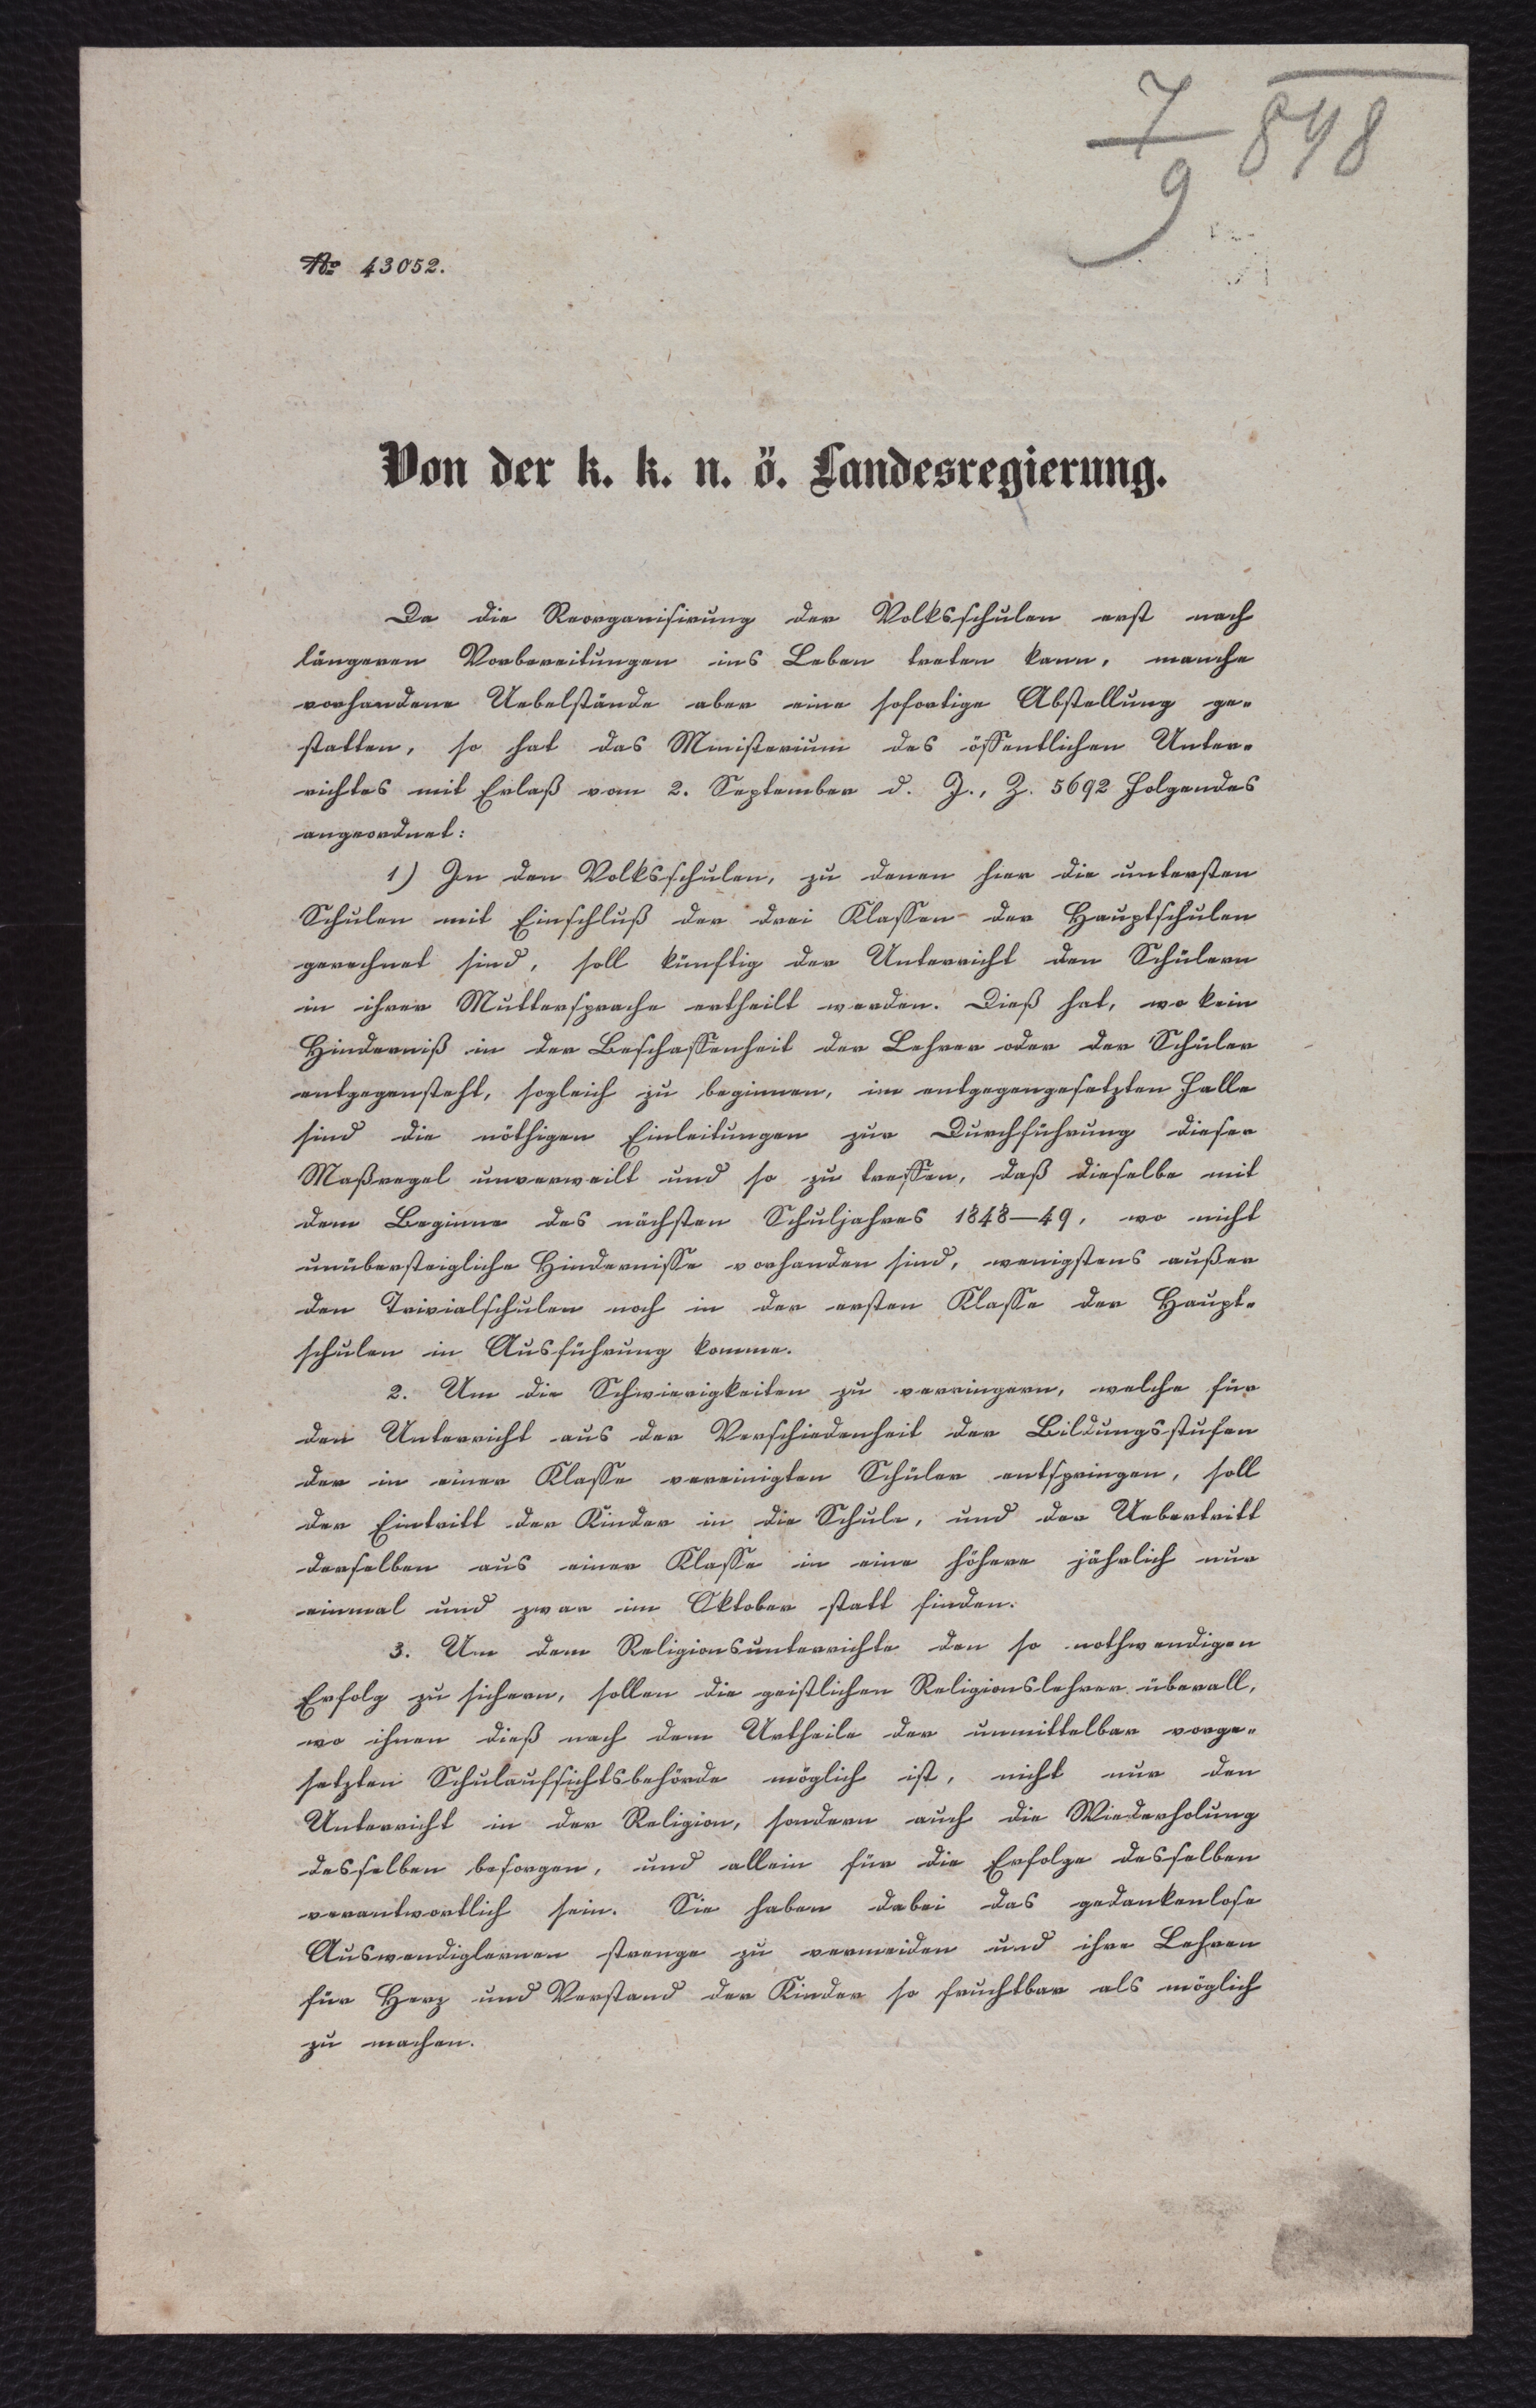 7/9 848
№ 43052.
Von der k. k. n. ö. Landesregierung.
Da die Reorganisirung der Volksschulen erst nach
längeren Vorbereitungen ins Leben treten kann, manche
vorhandene Uebelstände aber eine sofortige Abstellung ge-
statten, so hat das Ministerium des öffentlichen Unter-
richtes mit Erlaß vom 2. September d. J., Z. 5692 Folgendes
angeordnet:
1) In den Volksschulen, zu denen hier die untersten
Schulen mit Einschluß der drei Klassen der Hauptschulen
gerechnet sind, soll künftig der Unterricht den Schülern
in ihrer Muttersprache ertheilt werden. Dieß hat, wo kein
Hinderniß in der Beschaffenheit der Lehrer oder der Schüler
entgegensteht, sogleich zu beginnen, im entgegengesetzten Falle
sind die nöthigen Einleitungen zur Durchführung dieser
Maßregel unverweilt und so zu treffen, daß dieselbe mit
dem Beginne des nächsten Schuljahres 1848—49, wo nicht
unübersteigliche Hindernisse vorhanden sind, wenigstens außer
den Trivialschulen noch in der ersten Klasse der Haupt-
schulen in Ausführung komme.
2. Um die Schwierigkeiten zu verringern, welche für
den Unterricht aus der Verschiedenheit der Bildungsstufen
der in einer Klasse vereinigten Schüler entspringen, soll
der Eintritt der Kinder in die Schule, und der Uebertritt
derselben aus einer Klasse in eine höhere jährlich nur
einmal und zwar im Oktober statt finden.
3. Um dem Religionsunterrichte den so nothwendigen
Erfolg zu sichern, sollen die geistlichen Religionslehrer überall,
wo ihnen dieß nach dem Urtheile der unmittelbar vorge-
setzten Schulaufsichtsbehörde möglich ist, nicht nur den
Unterricht in der Religion, sondern auch die Wiederholung
desselben besorgen, und allein für die Erfolge desselben
verantwortlich sein. Sie haben dabei das gedankenlose
Auswendiglernen strenge zu vermeiden und ihre Lehren
für Herz und Verstand der Kinder so fruchtbar als möglich
zu machen.